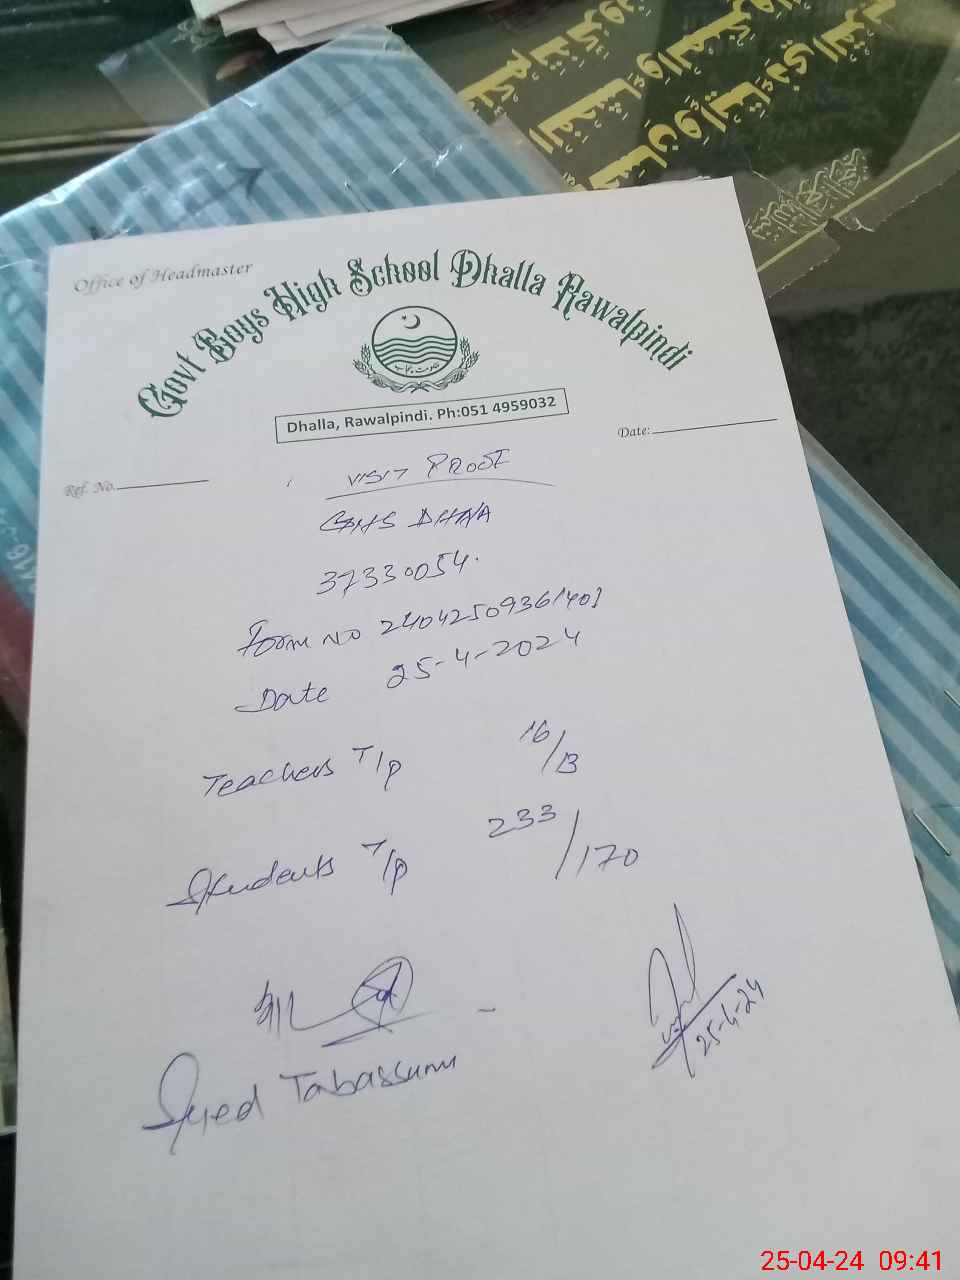 Office of Headmaster
Govt Boys High School Dhalla Rawalpindi
حکومت پنجاب
Dhalla, Rawalpindi. Ph:051 4959032
Date:
Ref. No.
VISIT PROOF
GBHS DHALLA
37330054.
Form NO 24042509361401
Date 25-4-2024
Teachers T/P 16/13
Students T/P 233/170
Syed Tabassum
25-4-24
25-04-24 09:41